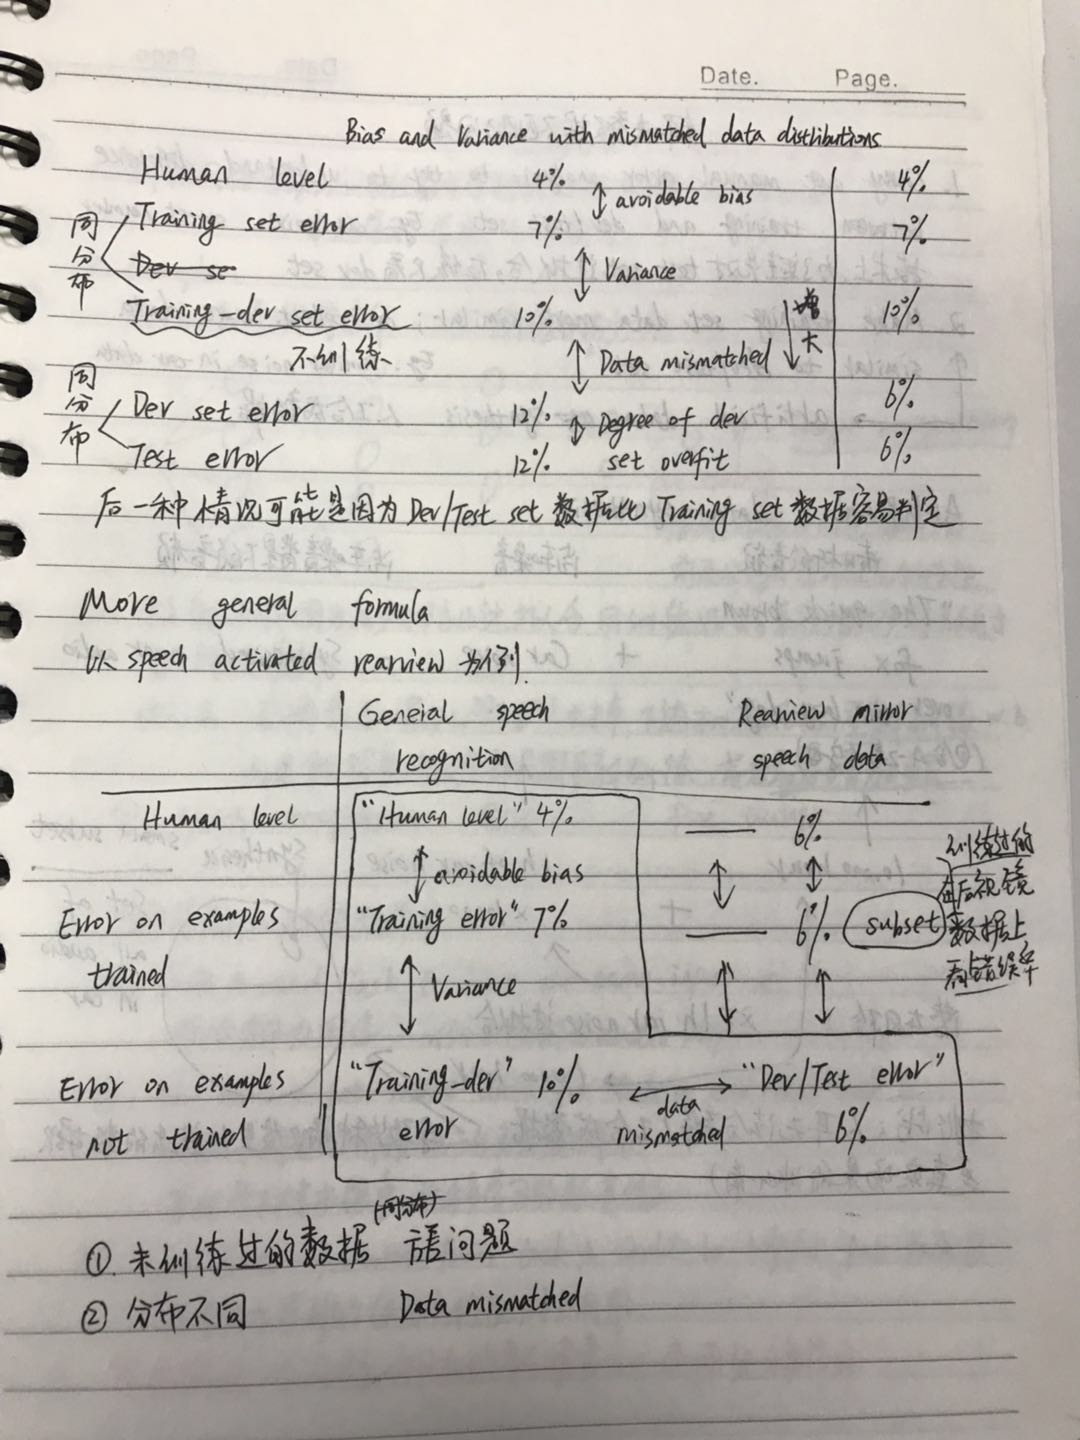 Date. Page.
Bias and Variance with mismatched data distributions
Human level 4% avoidable bias 4%
同分布 Training set error 7% 7%
Dev se Variance
Training-dev set error 10% 增大 10%
不训练 Data mismatched
同分布 Dev set error 12% Degree of dev 6%
Test error 12% set overfit 6%
后一种情况可能是因为Dev/Test set数据比Training set数据容易判定
More general formula
以speech activated rearview为例.
General speech Rearview mirror
recognition speech data
Human level "Human level" 4% 6%
avoidable bias
Error on examples "Training error" 7% 6% subset
trained
训练过的
后视镜
数据上
看错误率
Variance
Error on examples "Training-dev" 10% "Dev/Test error"
not trained error data mismatched 6%
(同分布)
① 未训练过的数据 方差问题
② 分布不同 Data mismatched